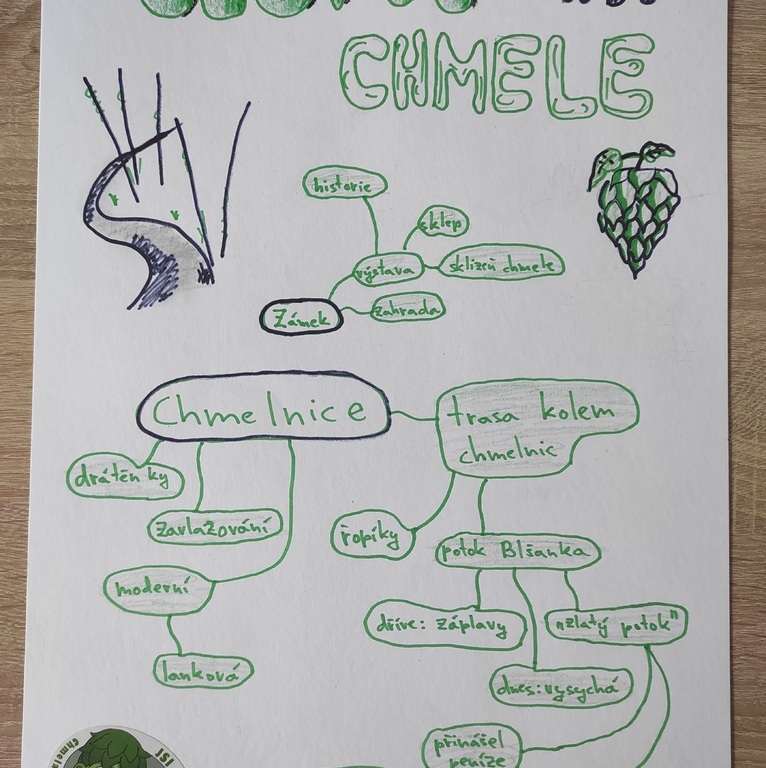 CHMELE
historie
sklep
výstava
sklizeň chmele
Zámek
zahrada
Chmelnice
trasa kolem
chmelnic
drátěnky
zavlažování
řopíky
potok Blšanka
moderní
dříve: záplavy
„zlatý potok"
lanková
dnes: vysychá
přinášel
peníze